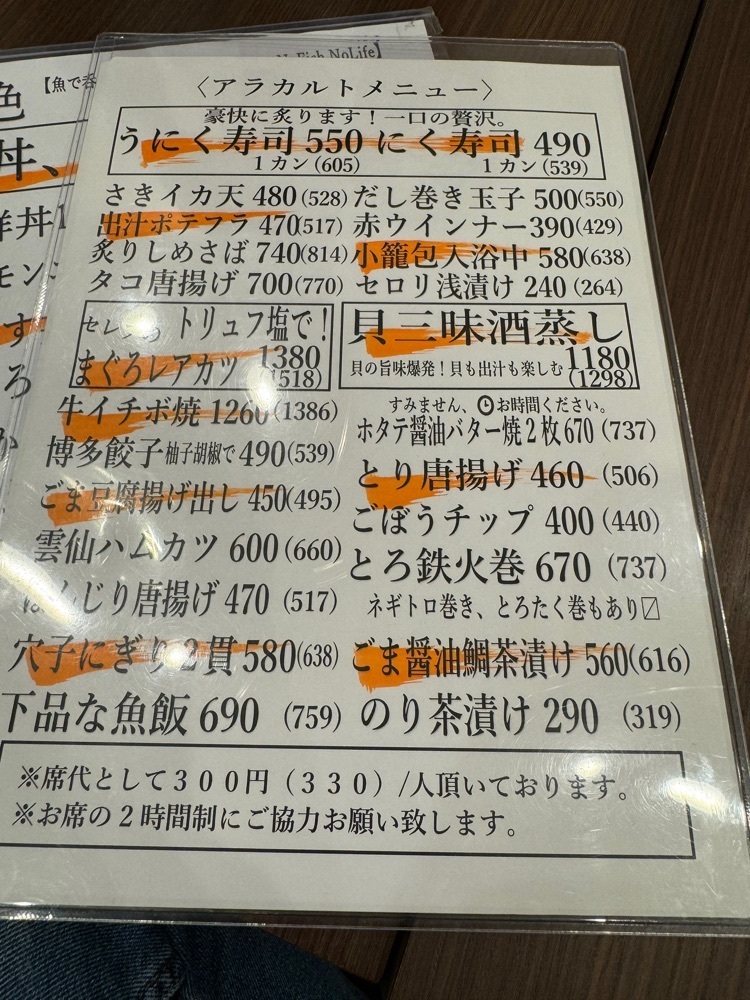 No Fish No Life】
【魚で呑
色
丼、
洋丼1
す
ろ
か
〈アラカルトメニュー〉
豪快に炙ります！一口の贅沢。
うにく寿司 550 にく寿司 490
1カン(605) 1カン(539)
さきイカ天 480(528) だし巻き玉子 500(550)
出汁ポテフラ 470(517) 赤ウインナー390(429)
炙りしめさば 740(814) 小籠包入浴中 580(638)
タコ唐揚げ 700(770) セロリ浅漬け 240 (264)
トリュフ塩で！
まぐろレアカツ 1380
(1518)
貝三昧酒蒸し
貝の旨味爆発！貝も出汁も楽しむ 1180
(1298)
牛イチボ焼 1260(1386)
博多餃子 柚子胡椒で 490(539)
ごま豆腐揚げ出し 450(495)
雲仙ハムカツ 600(660)
ぼんじり唐揚げ 470 (517)
穴子にぎり２貫 580(638)
下品な魚飯 690 (759)
すみません、🕒お時間ください。
ホタテ醤油バター焼２枚 670 (737)
とり唐揚げ 460 (506)
ごぼうチップ 400 (440)
とろ鉄火巻 670 (737)
ネギトロ巻き、とろたく巻もあり〼
ごま醤油鯛茶漬け 560(616)
のり茶漬け 290 (319)
※席代として３００円（３３０）/人頂いております。
※お席の２時間制にご協力お願い致します。